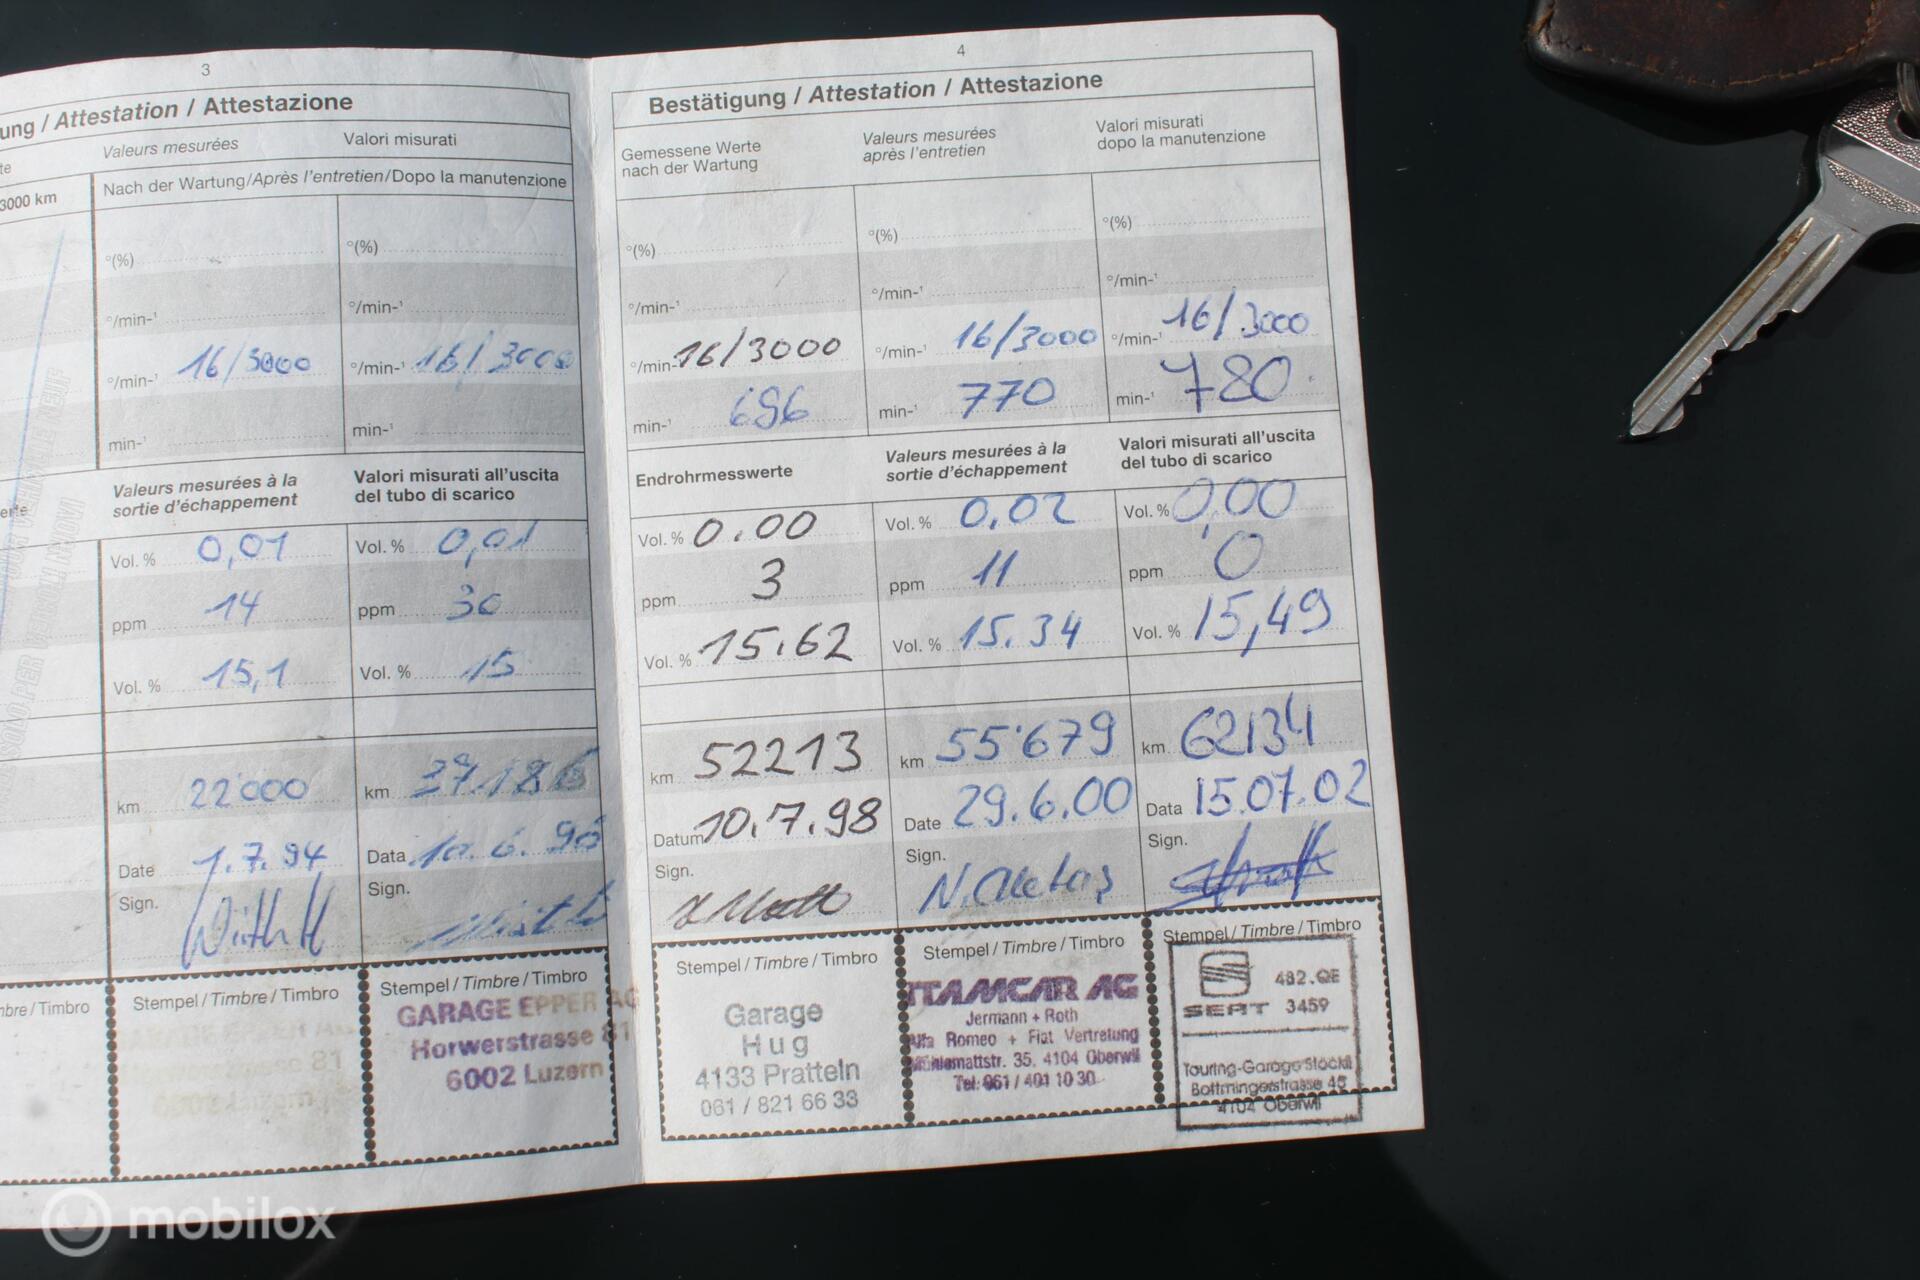 3
ung / Attestation / Attestazione
te
Valeurs mesurées
Valori misurati
3000 km
Nach der Wartung/Après l'entretien/Dopo la manutenzione
°(%)
°(%)
°/min-¹
°/min-¹
°/min-¹ 16/3000
°/min-¹ 16/3000
min-¹
min-¹
erte
Valeurs mesurées à la
sortie d'échappement
Valori misurati all'uscita
del tubo di scarico
Vol. % 0,01
Vol. % 0,01
ppm 14
ppm 30
Vol. % 15,1
Vol. % 15
km 22'000
km 37.186
Date 1.7.94
Data 10.6.96
Sign.
Sign.
bre / Timbro
Stempel / Timbre / Timbro
Stempel / Timbre / Timbro
GARAGE EPPER AG
Horwerstrasse 81
6002 Luzern
GARAGE EPPER AG
Horwerstrasse 81
6002 Luzern
4
Bestätigung / Attestation / Attestazione
Gemessene Werte
nach der Wartung
Valeurs mesurées
après l'entretien
Valori misurati
dopo la manutenzione
°(%)
°(%)
°(%)
°/min-¹
°/min-¹
°/min-¹
°/min-¹ 16/3000
°/min-¹ 16/3000
°/min-¹ 16/3000
min-¹ 696
min-¹ 770
min-¹ 780
Endrohrmesswerte
Valeurs mesurées à la
sortie d'échappement
Valori misurati all'uscita
del tubo di scarico
Vol. % 0.00
Vol. % 0,02
Vol. % 0,00
ppm 3
ppm 11
ppm 0
Vol. % 15.62
Vol. % 15.34
Vol. % 15,49
km 52213
km 55'679
km 62134
Datum 10.7.98
Date 29.6.00
Data 15.07.02
Sign.
Sign.
Sign.
Stempel / Timbre / Timbro
Stempel / Timbre / Timbro
Stempel / Timbre / Timbro
Garage
Hug
4133 Pratteln
061 / 821 66 33
ITAMCAR AG
Jermann + Roth
Alfa Romeo + Fiat Vertretung
Mühlemattstr. 35, 4104 Oberwil
Tel: 061 / 401 10 30
SEAT
482.QE
3459
Touring-Garage Stöckli
Bottmingerstrasse 45
4104 Oberwil
mobilox